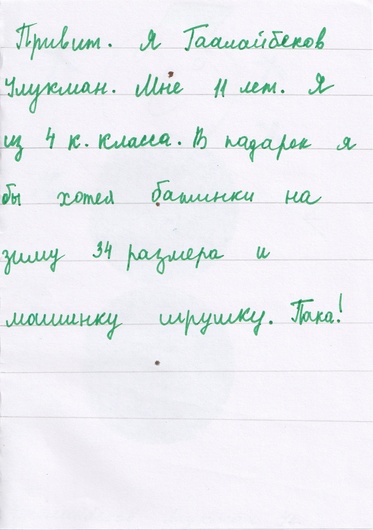 Привит. Я Таалайбеков
Улукман. Мне 11 лет. Я
из 4 к. класса. В падарек я
бы хотел батинки на
зиму 34 размера и
машинку игрушку. Пака!